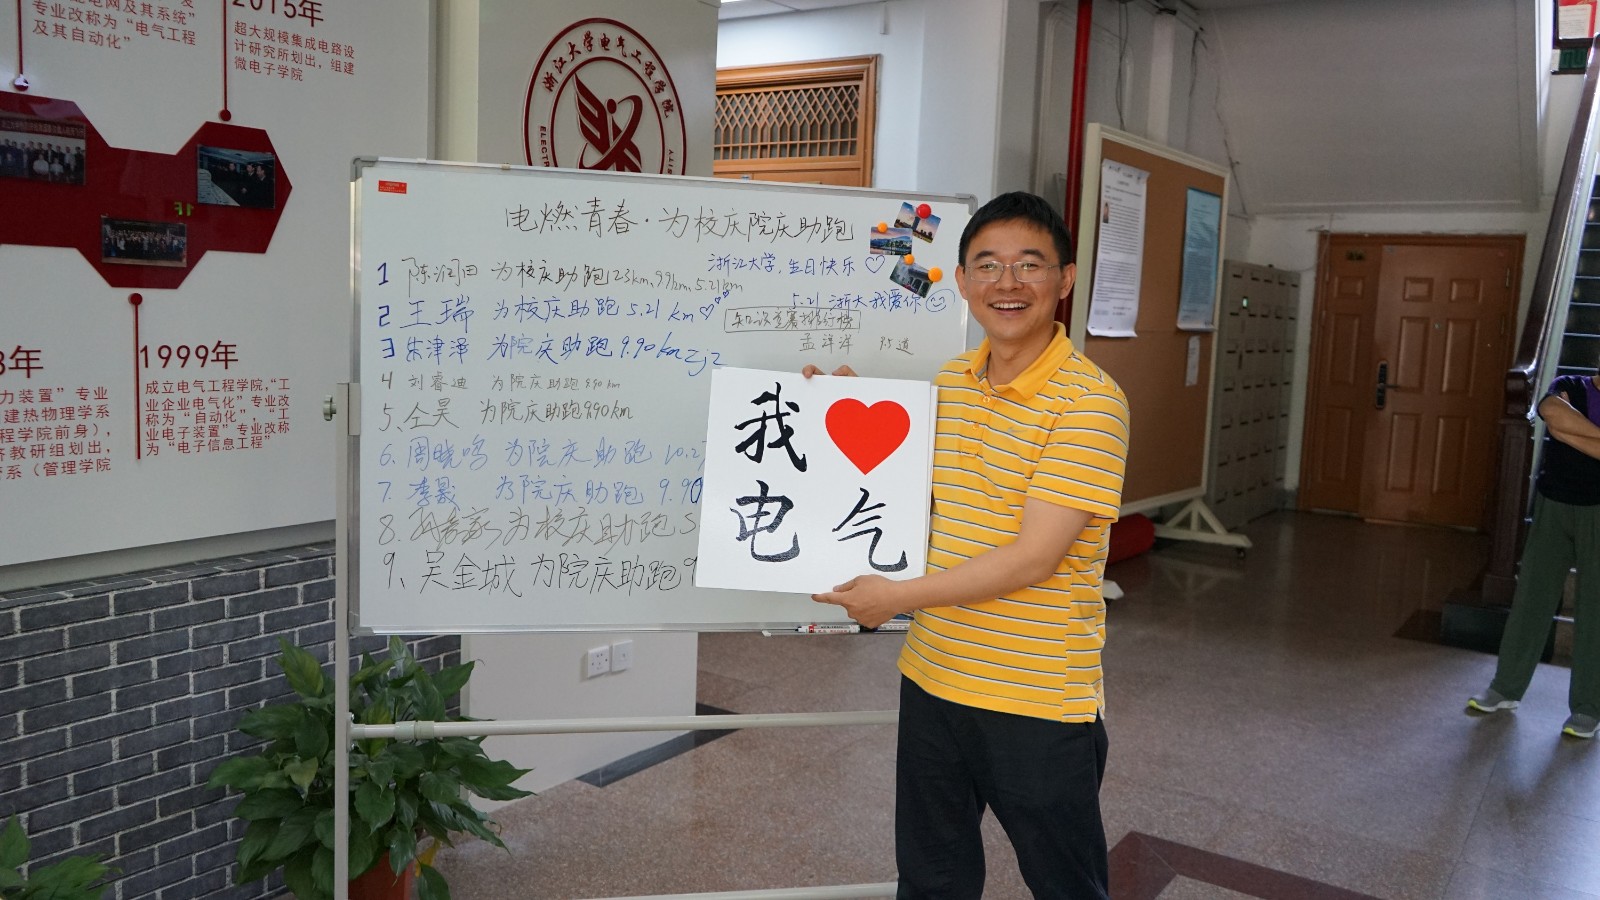 电网及其系统”
专业改称为“电气工程
及其自动化”
2015年
超大规模集成电路设
计研究所划出，组建
微电子学院
浙江大学电气工程学院
ELECTR
1F
1999年
成立电气工程学院，“工
业企业电气化”专业改
称为“自动化”，“工
业电子装置”专业改称
为“电子信息工程”
年
力装置”专业
建热物理学系
程学院前身），
教研组划出，
系（管理学院
电燃青春·为校庆院庆助跑
浙江大学，生日快乐♡
5.21 浙大我爱你
知识竞赛排行榜
孟洋洋 95道
1 陈润田 为校庆助跑123km、99km、5.21km
2 王瑞 为校庆助跑 5.21 km♡
3 朱津泽 为院庆助跑9.90km zjz
4 刘睿迪 为院庆助跑9.90km
5、仝昊 为院庆助跑990km
6、周晓鸣 为院庆助跑 10.2
7、李晟 为院庆助跑 9.90
8、为校庆助跑 5
9、吴金城 为院庆助跑 9
我❤
电气